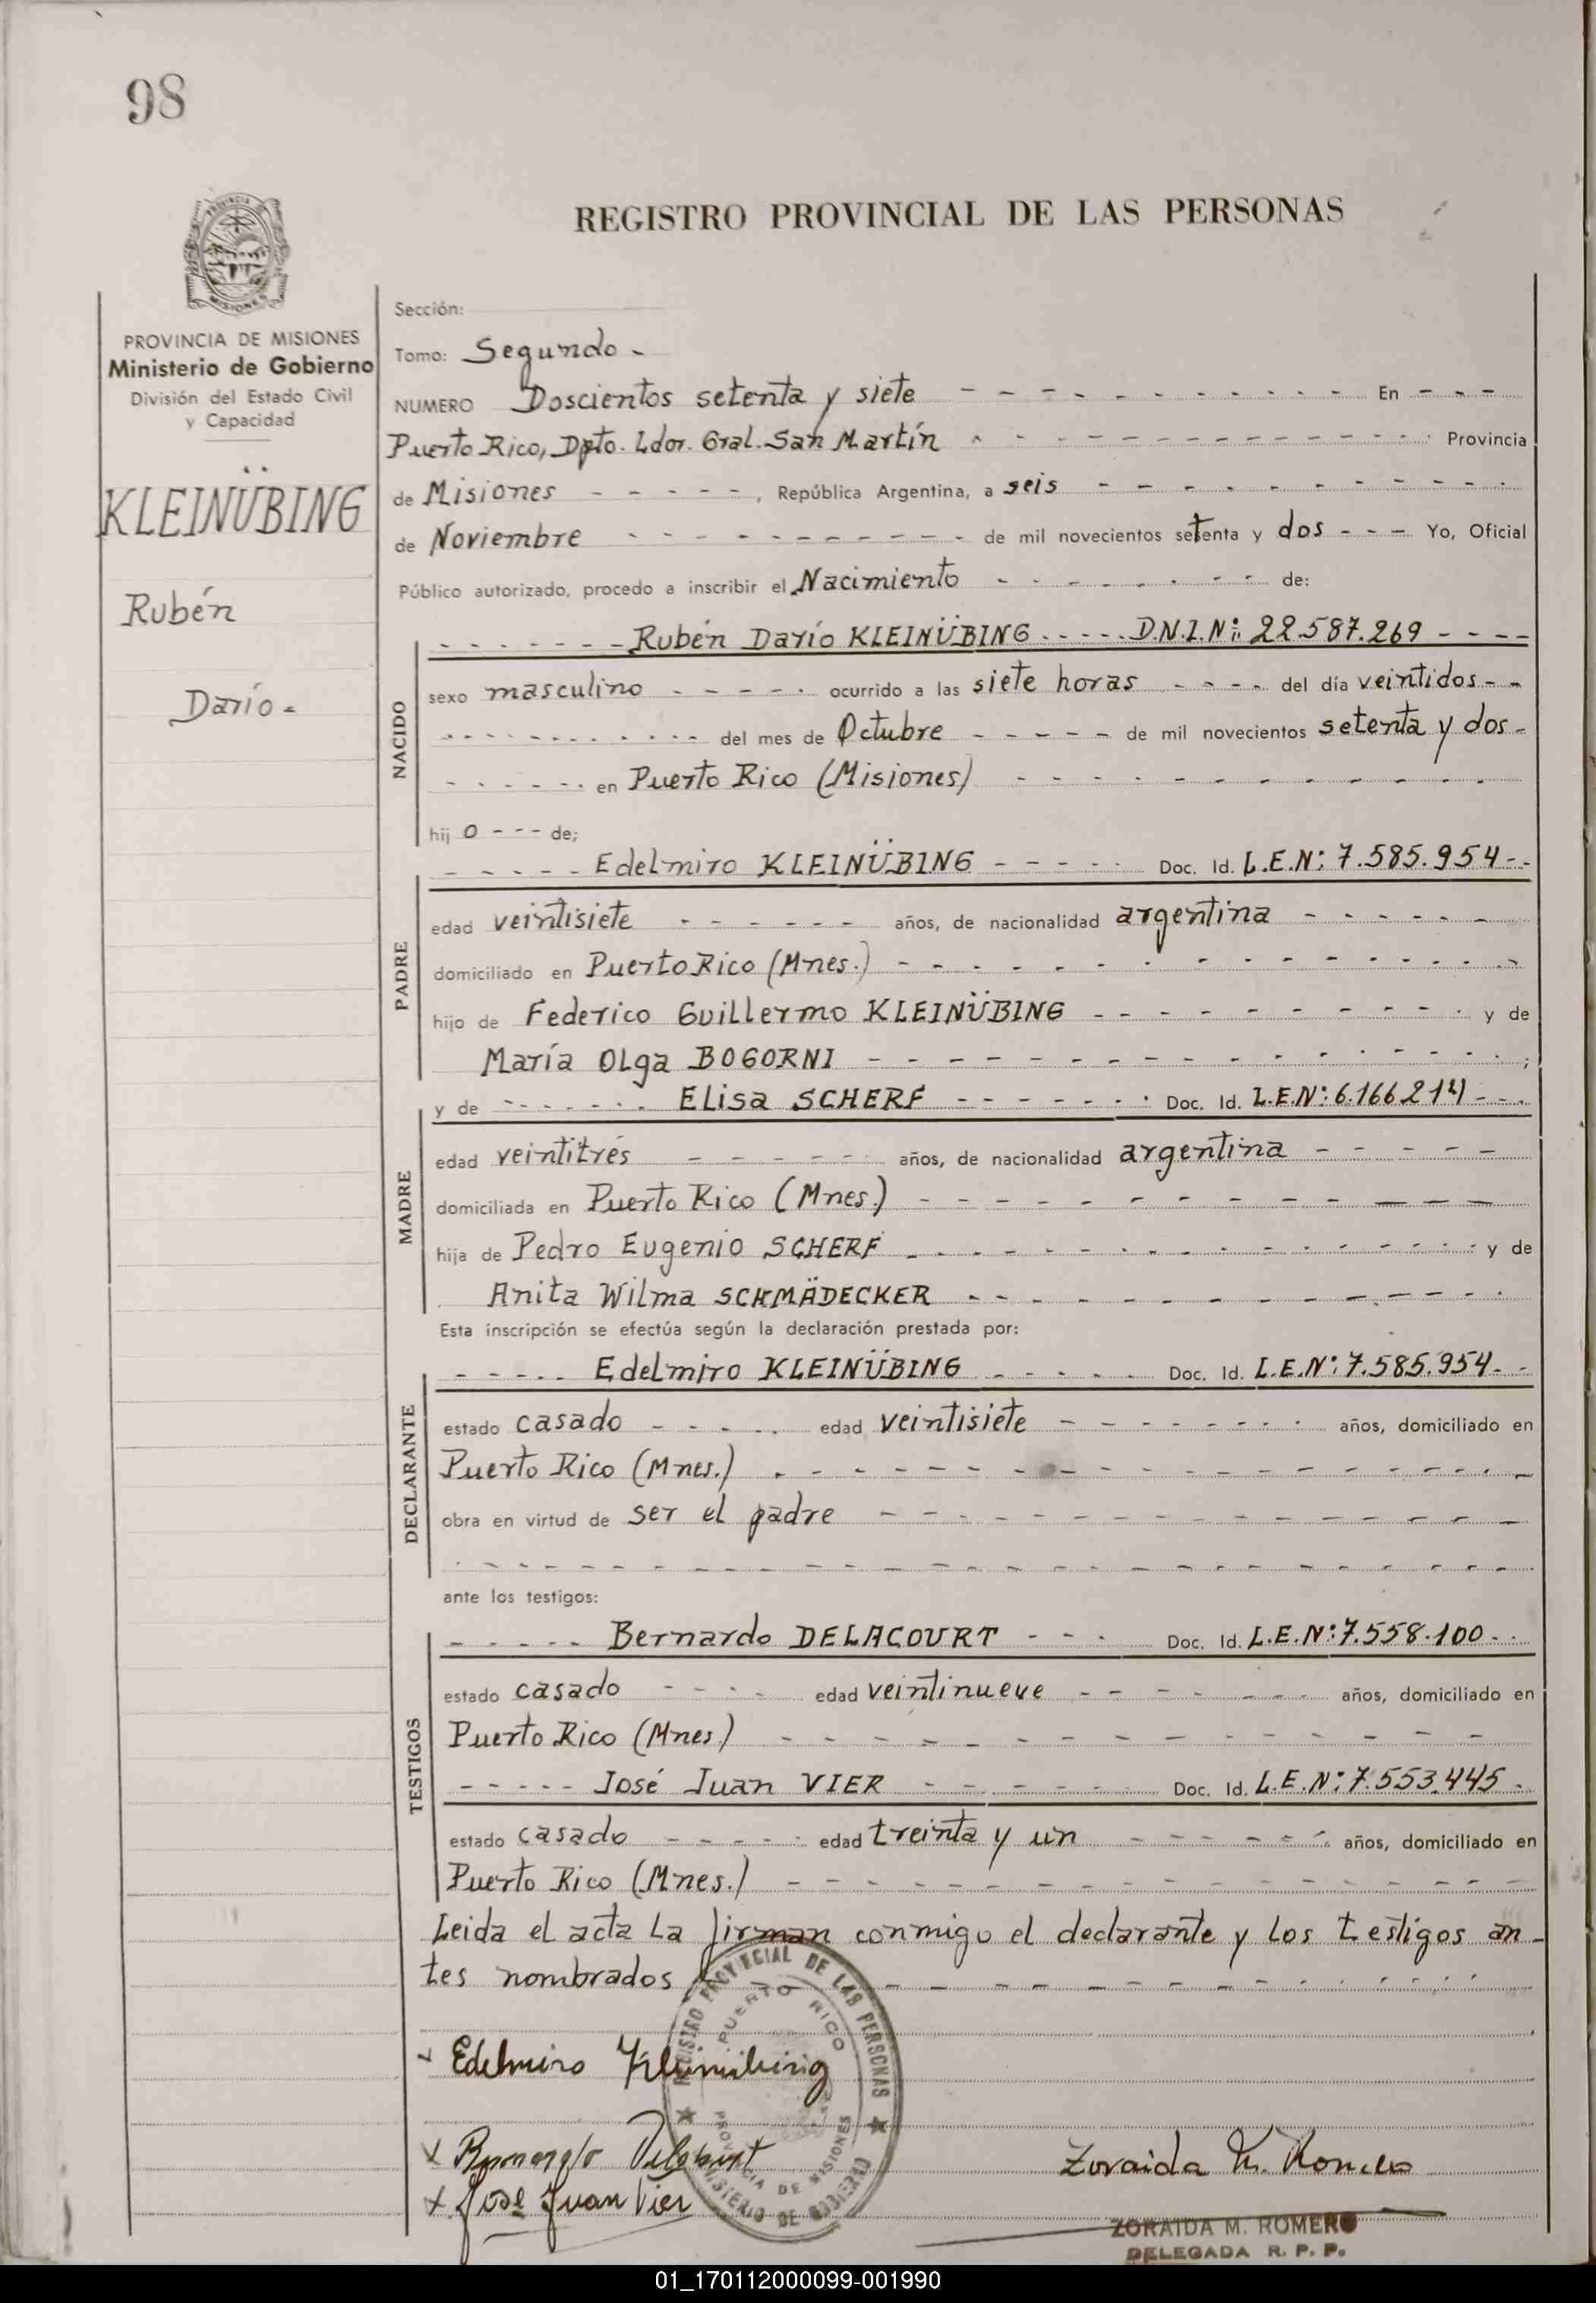 98
REGISTRO PROVINCIAL DE LAS PERSONAS
PROVINCIA DE MISIONES
Ministerio de Gobierno
División del Estado Civil
y Capacidad
KLEINÜBING
Rubén
Darío =
Sección:
Tomo: Segundo -
NUMERO Doscientos setenta y siete - - - En - - -
Puerto Rico, Dpto. Ldor. Gral. San Martín - - - Provincia
de Misiones - - - - -, República Argentina, a seis - - -
de Noviembre - - - de mil novecientos setenta y dos - - - Yo, Oficial
Público autorizado, procedo a inscribir el Nacimiento - - - de:
NACIDO
- - - Rubén Darío KLEINÜBING - - - D.N.I.Nº: 22.587.269 - - -
sexo masculino - - - ocurrido a las siete horas - - - del día veintidos - -
- - - del mes de Octubre - - - de mil novecientos setenta y dos -
- - - en Puerto Rico (Misiones) - - -
hij o - - - de;
PADRE
- - - Edelmiro KLEINÜBING - - - Doc. Id. L.E.Nº: 7.585.954 - -
edad veintisiete - - - años, de nacionalidad argentina - - -
domiciliado en Puerto Rico (Mnes.) - - -
hijo de Federico Guillermo KLEINÜBING - - - y de
María Olga BOGORNI - - - ;
MADRE
y de - - - Elisa SCHERF - - - Doc. Id. L.E.Nº: 6.166.214 - - -
edad veintitrés - - - años, de nacionalidad argentina - - -
domiciliada en Puerto Rico (Mnes.) - - -
hija de Pedro Eugenio SCHERF - - - y de
Anita Wilma SCHMÄDECKER - - -
Esta inscripción se efectúa según la declaración prestada por:
DECLARANTE
- - - Edelmiro KLEINÜBING - - - Doc. Id. L.E.Nº: 7.585.954 - -
estado casado - - - edad veintisiete - - - años, domiciliado en
Puerto Rico (Mnes.) - - -
obra en virtud de ser el padre - - -
ante los testigos:
TESTIGOS
- - - Bernardo DELACOURT - - - Doc. Id. L.E.Nº: 7.558.100 - -
estado casado - - - edad veintinueve - - - años, domiciliado en
Puerto Rico (Mnes.) - - -
- - - José Juan VIER - - - Doc. Id. L.E.Nº: 7.553.445 -
estado casado - - - edad treinta y un - - - años, domiciliado en
Puerto Rico (Mnes.) - - -
Leida el acta la firman conmigo el declarante y los testigos an-
tes nombrados - - -
REGISTRO PROVINCIAL DE LAS PERSONAS
PUERTO RICO
PROVINCIA DE MISIONES
MINISTERIO DE GOBIERNO
Edelmiro Kleinübing
Bernardo Delacourt
José Juan Vier
Zoraida M. Romero
ZORAIDA M. ROMERO
DELEGADA R. P. P.
01_170112000099-001990